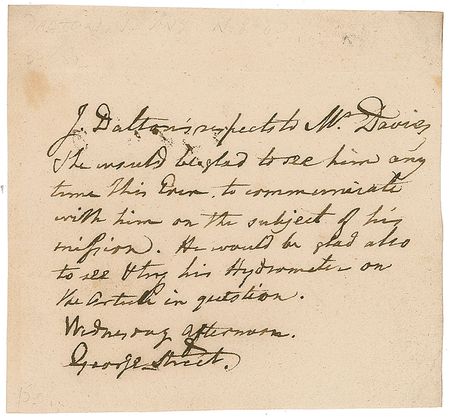 J. Dalton's respects to Mr. Davies,
& he would be glad to see him any
time this Even. to communicate
with him on the subject of his
mission. He would be glad also
to see & try his Hydrometer on
the article in question.
Wednesday afternoon.
George Street.